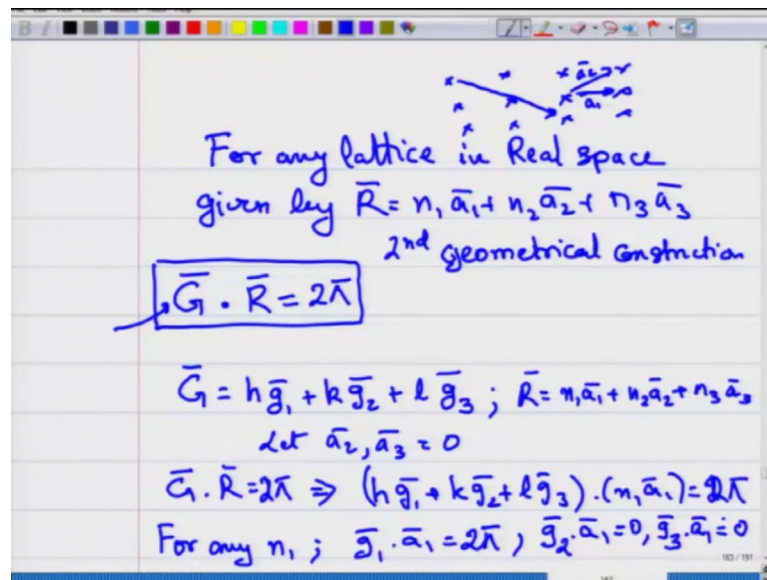 a̅₂
a̅₁
For any lattice in Real space
given by R̅ = n₁ a̅₁ + n₂ a̅₂ + n₃ a̅₃
2nd geometrical construction
G̅ . R̅ = 2π
G̅ = h g̅₁ + k g̅₂ + l g̅₃ ; R̅ = n₁a̅₁ + n₂a̅₂ + n₃a̅₃
Let a̅₂, a̅₃ = 0
G̅ . R̅ = 2π ⇒ (h g̅₁ + k g̅₂ + l g̅₃) . (n₁a̅₁) = 2π
For any n₁ ; g̅₁ . a̅₁ = 2π ; g̅₂ . a̅₁ = 0, g̅₃ . a̅₁ = 0
163 / 191